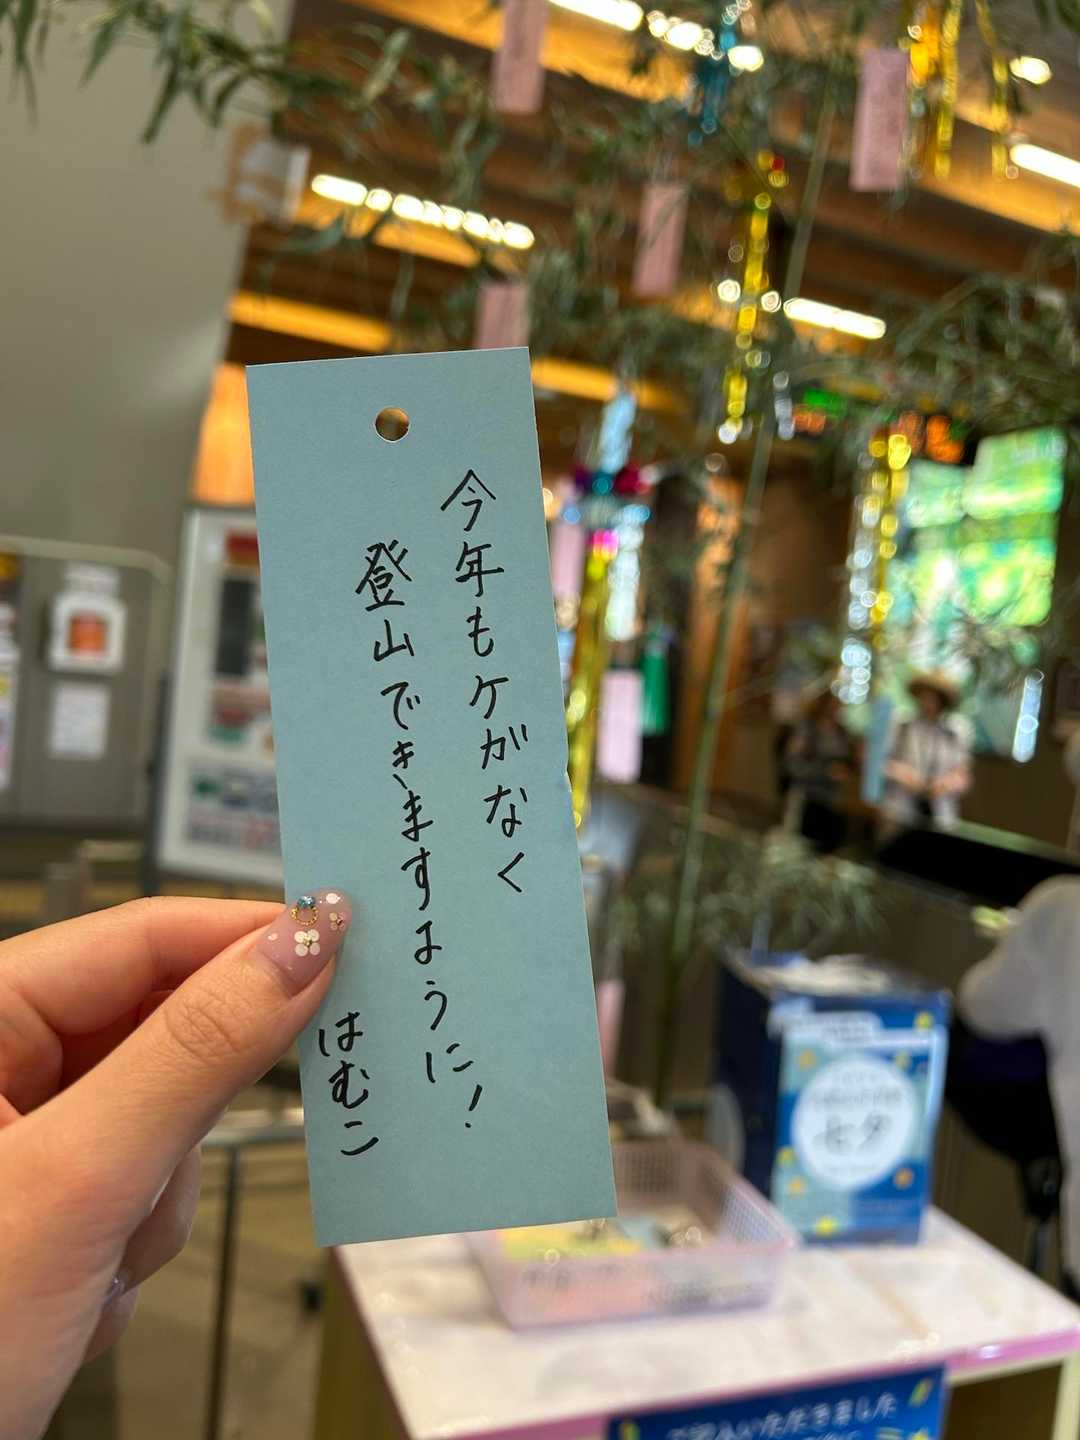 今年もケガなく
登山できますように!
はむこ
七夕
ご記入いただきました